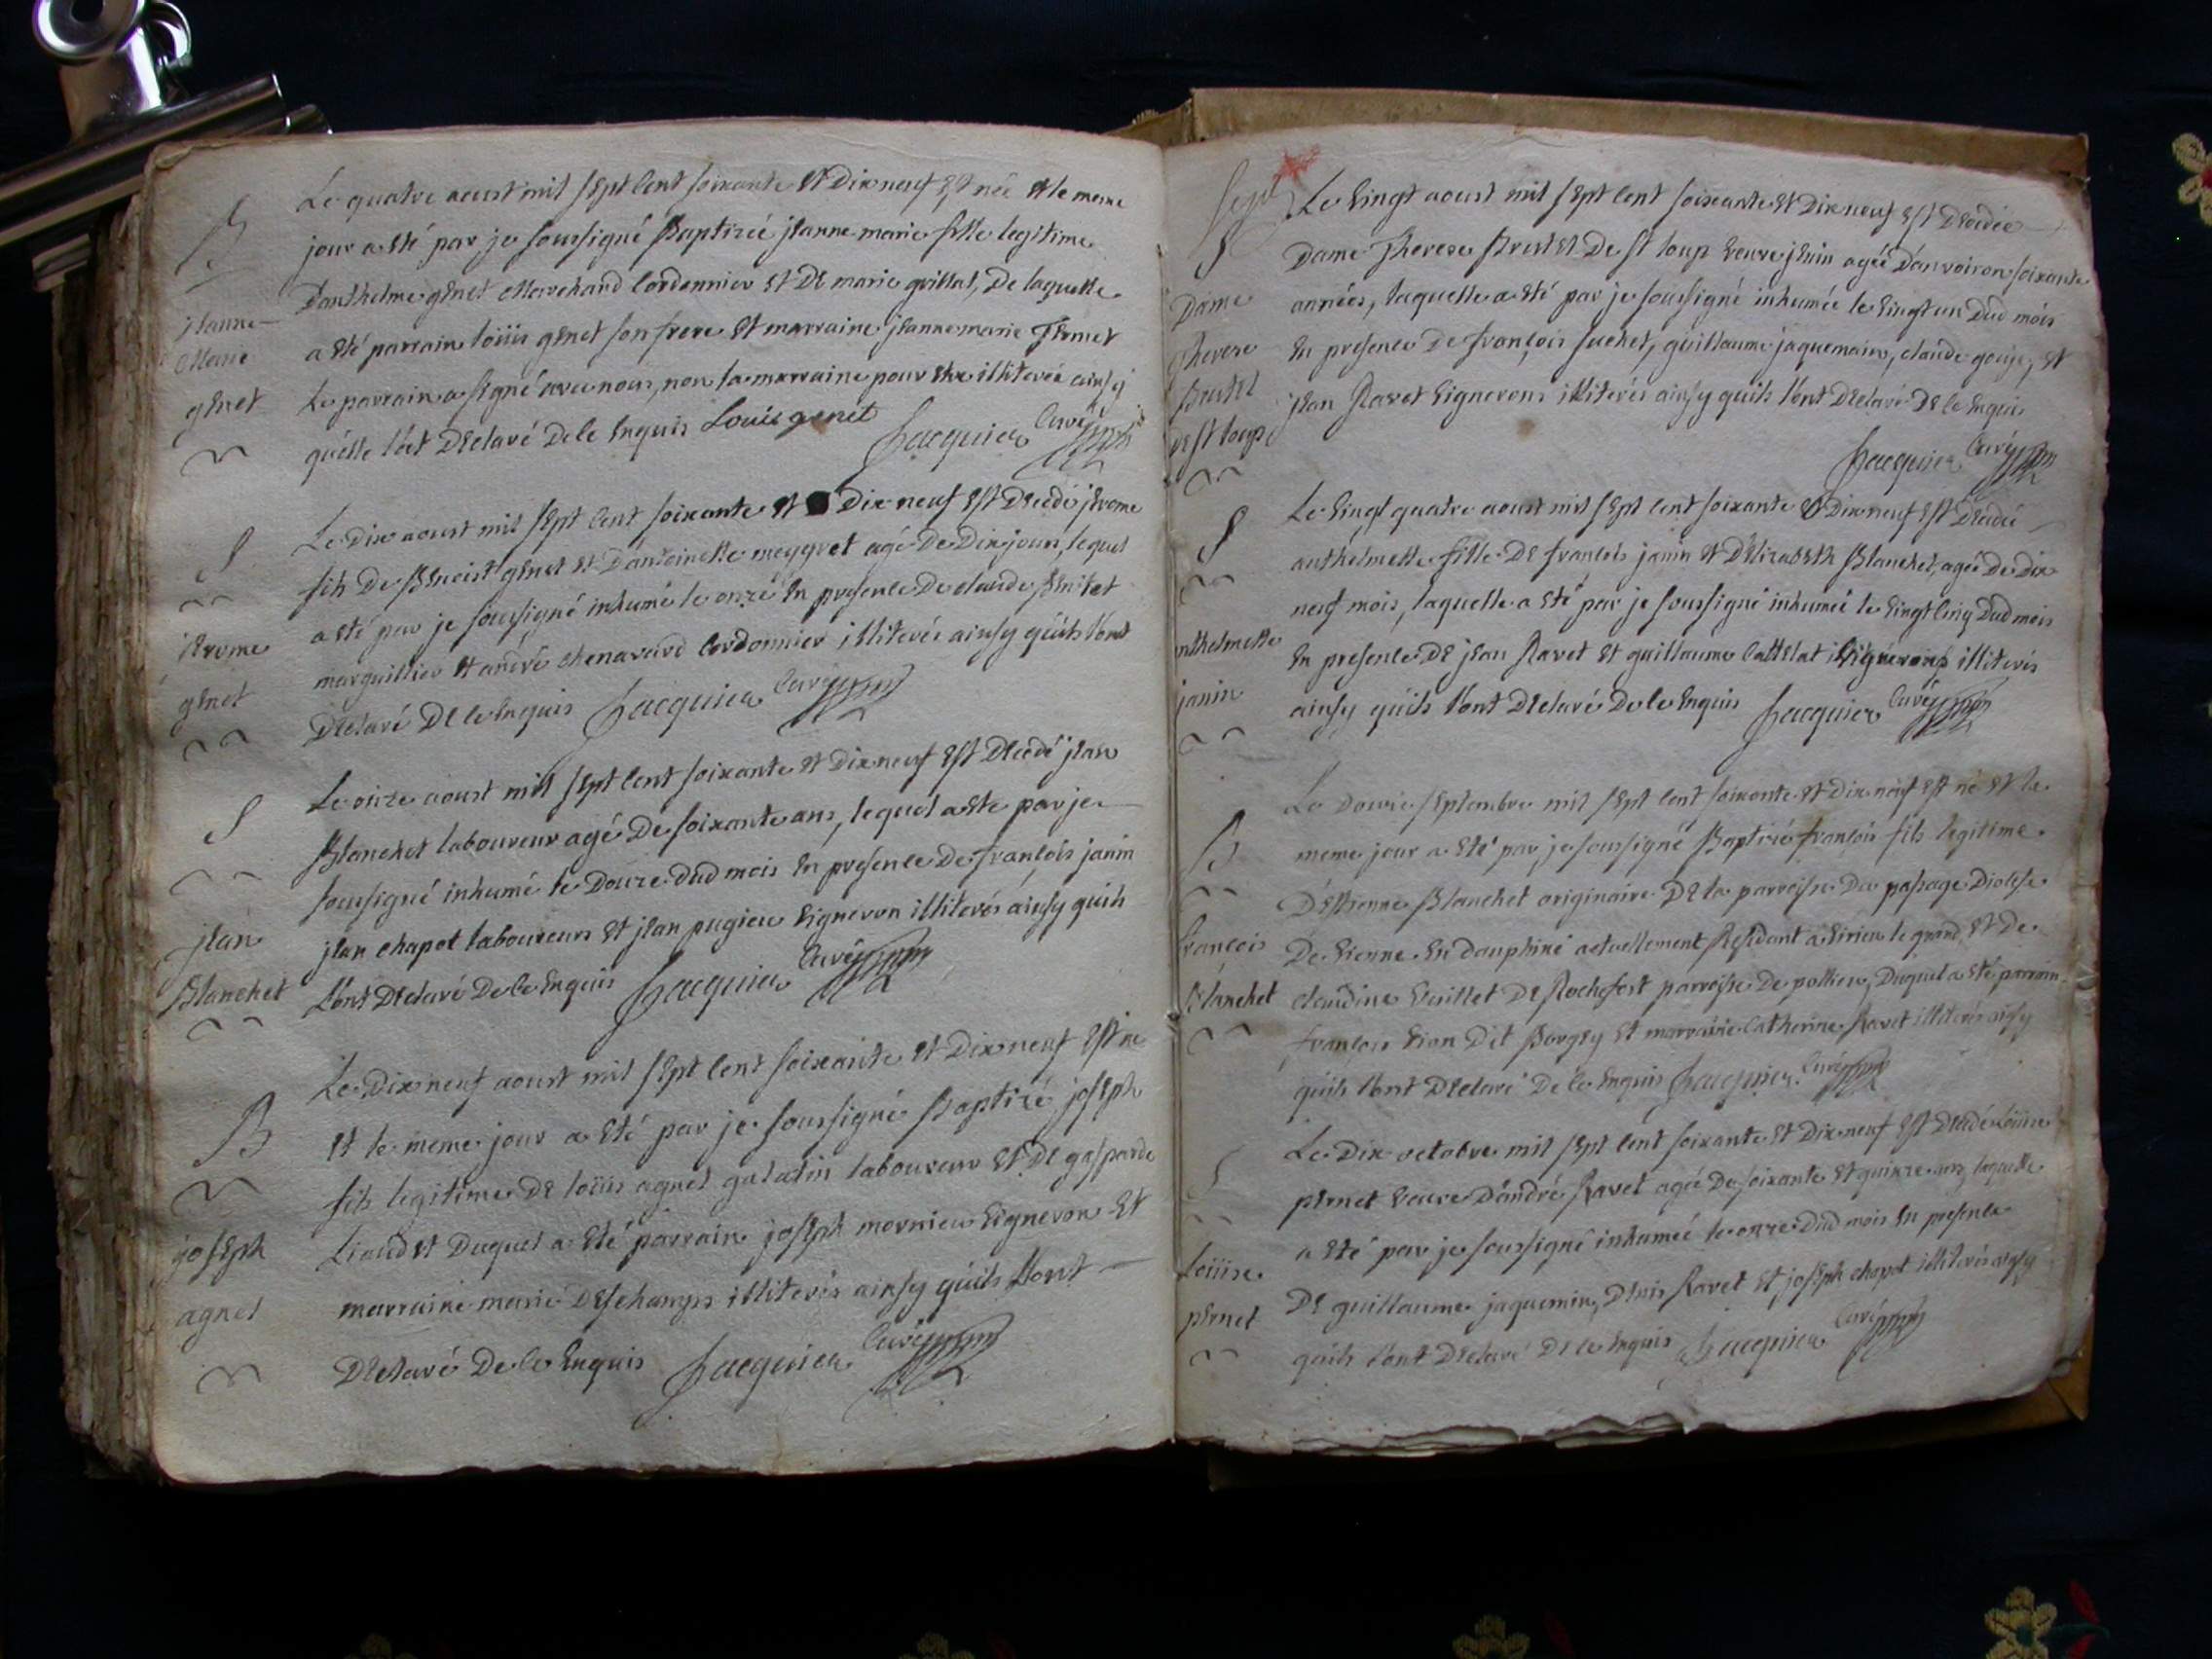 B
jeanne
Marie
genet
Le quatre aoust mil sept cent soixante et Dix neuf est née et le meme
jour a eté par je soussigné Baptizée jeanne marie fille legitime
D'anthelme genet Marchand Cordonnier et De marie guillat, De laquelle
a eté parrain loüis genet son frere et marraine jeanne marie
Le parrain a signé avec nous, non la marraine pour etre illiterée ainsy
qu'elle l'at Declaré De ce Enquis Louis genet Jacquier Curé
S
jerome
genet
Le Dix aoust mil sept cent soixante et Dix neuf est Decedé jerome
fils De Benoist genet et D'antoinette meygret agé De Dix jours, lequel
a eté par je soussigné inhumé le onze En presence De claude
marguillier et andré chenavard Cordonnier illiterés ainsy qu'ils l'ont
Declaré De ce Enquis Jacquier Curé
S
jean
Blanchet
Le onze aoust mil sept cent soixante et Dix neuf est Decedé jean
Blanchet laboureur agé De soixante ans, lequel a ete par je
soussigné inhumé le Douze dud mois En presence De françois janin
jean chapot laboureurs et jean pugieu Vigneron illiterés ainsy qu'ils
l'ont Declaré De ce Enquis Jacquier Curé
B
joseph
agnel
Le Dix neuf aoust mil sept cent soixante et Dix neuf est né
et le meme jour a eté par je soussigné Baptizé joseph
fils legitime De loüis agnel galatin laboureur et De gasparde
Liaudet Duquel a eté parrain joseph mornieu Vigneron et
marraine marie Deschamps illiterés ainsy qu'ils l'ont
Declaré De ce Enquis Jacquier Curé
S
Dame
Therese
Brutel
De st loup
Le Vingt aoust mil sept cent soixante et Dix neuf est Decedée
Dame Therese Brutel De st loup Veuve jenin agée D'anviron soixante
années, laquelle a eté par je soussigné inhumée le Vingt un Dud mois
En presence De françois suchet, guillaume jaquemain, claude gouje, et
jean Ravet Vignerons illiterés ainsy qu'ils l'ont Declaré De ce Enquis
Jacquier Curé
S
nthelmette
janin
Le Vingt quatre aoust mil sept cent soixante et Dix neuf est Decedée
anthelmette fille De françois janin et D'Elizabeth Blanchet, agée De Dix
neuf mois, laquelle a eté par je soussigné inhumée le Vingt cinq Dud mois
En presence De jean Ravet et guillaume Cattelat Vignerons illiterés
ainsy qu'ils l'ont Declaré De ce Enquis Jacquier Curé
B
françois
Blanchet
Le Douze septembre mil sept cent soixante et Dix neuf est né et le
meme jour a eté par je soussigné Baptizé françois fils legitime
D'Estienne Blanchet originaire De la parroisse Du passage Diocese
De Vienne En Dauphiné actuellement Residant a Virieu le grand, et De
claudine Vuillet De Rochefort parroisse De pollieu, Duquel a eté parrain
françois Vion Dit Borgey et marraine Catherine Ravet illiterés ainsy
qu'ils l'ont Declaré De ce Enquis Jacquier Curé
S
Loüise
pernet
Le Dix octobre mil sept cent soixante et Dix neuf est Decedé Loüise
pernet Veuve D'andré Ravet agée De soixante et quinze ans, laquelle
a eté par je soussigné inhumée le onze Dud mois En presence
De guillaume jaquemin, Denis Ravet et joseph chapot illiterés ainsy
qu'ils l'ont Declaré De ce Enquis Jacquier Curé